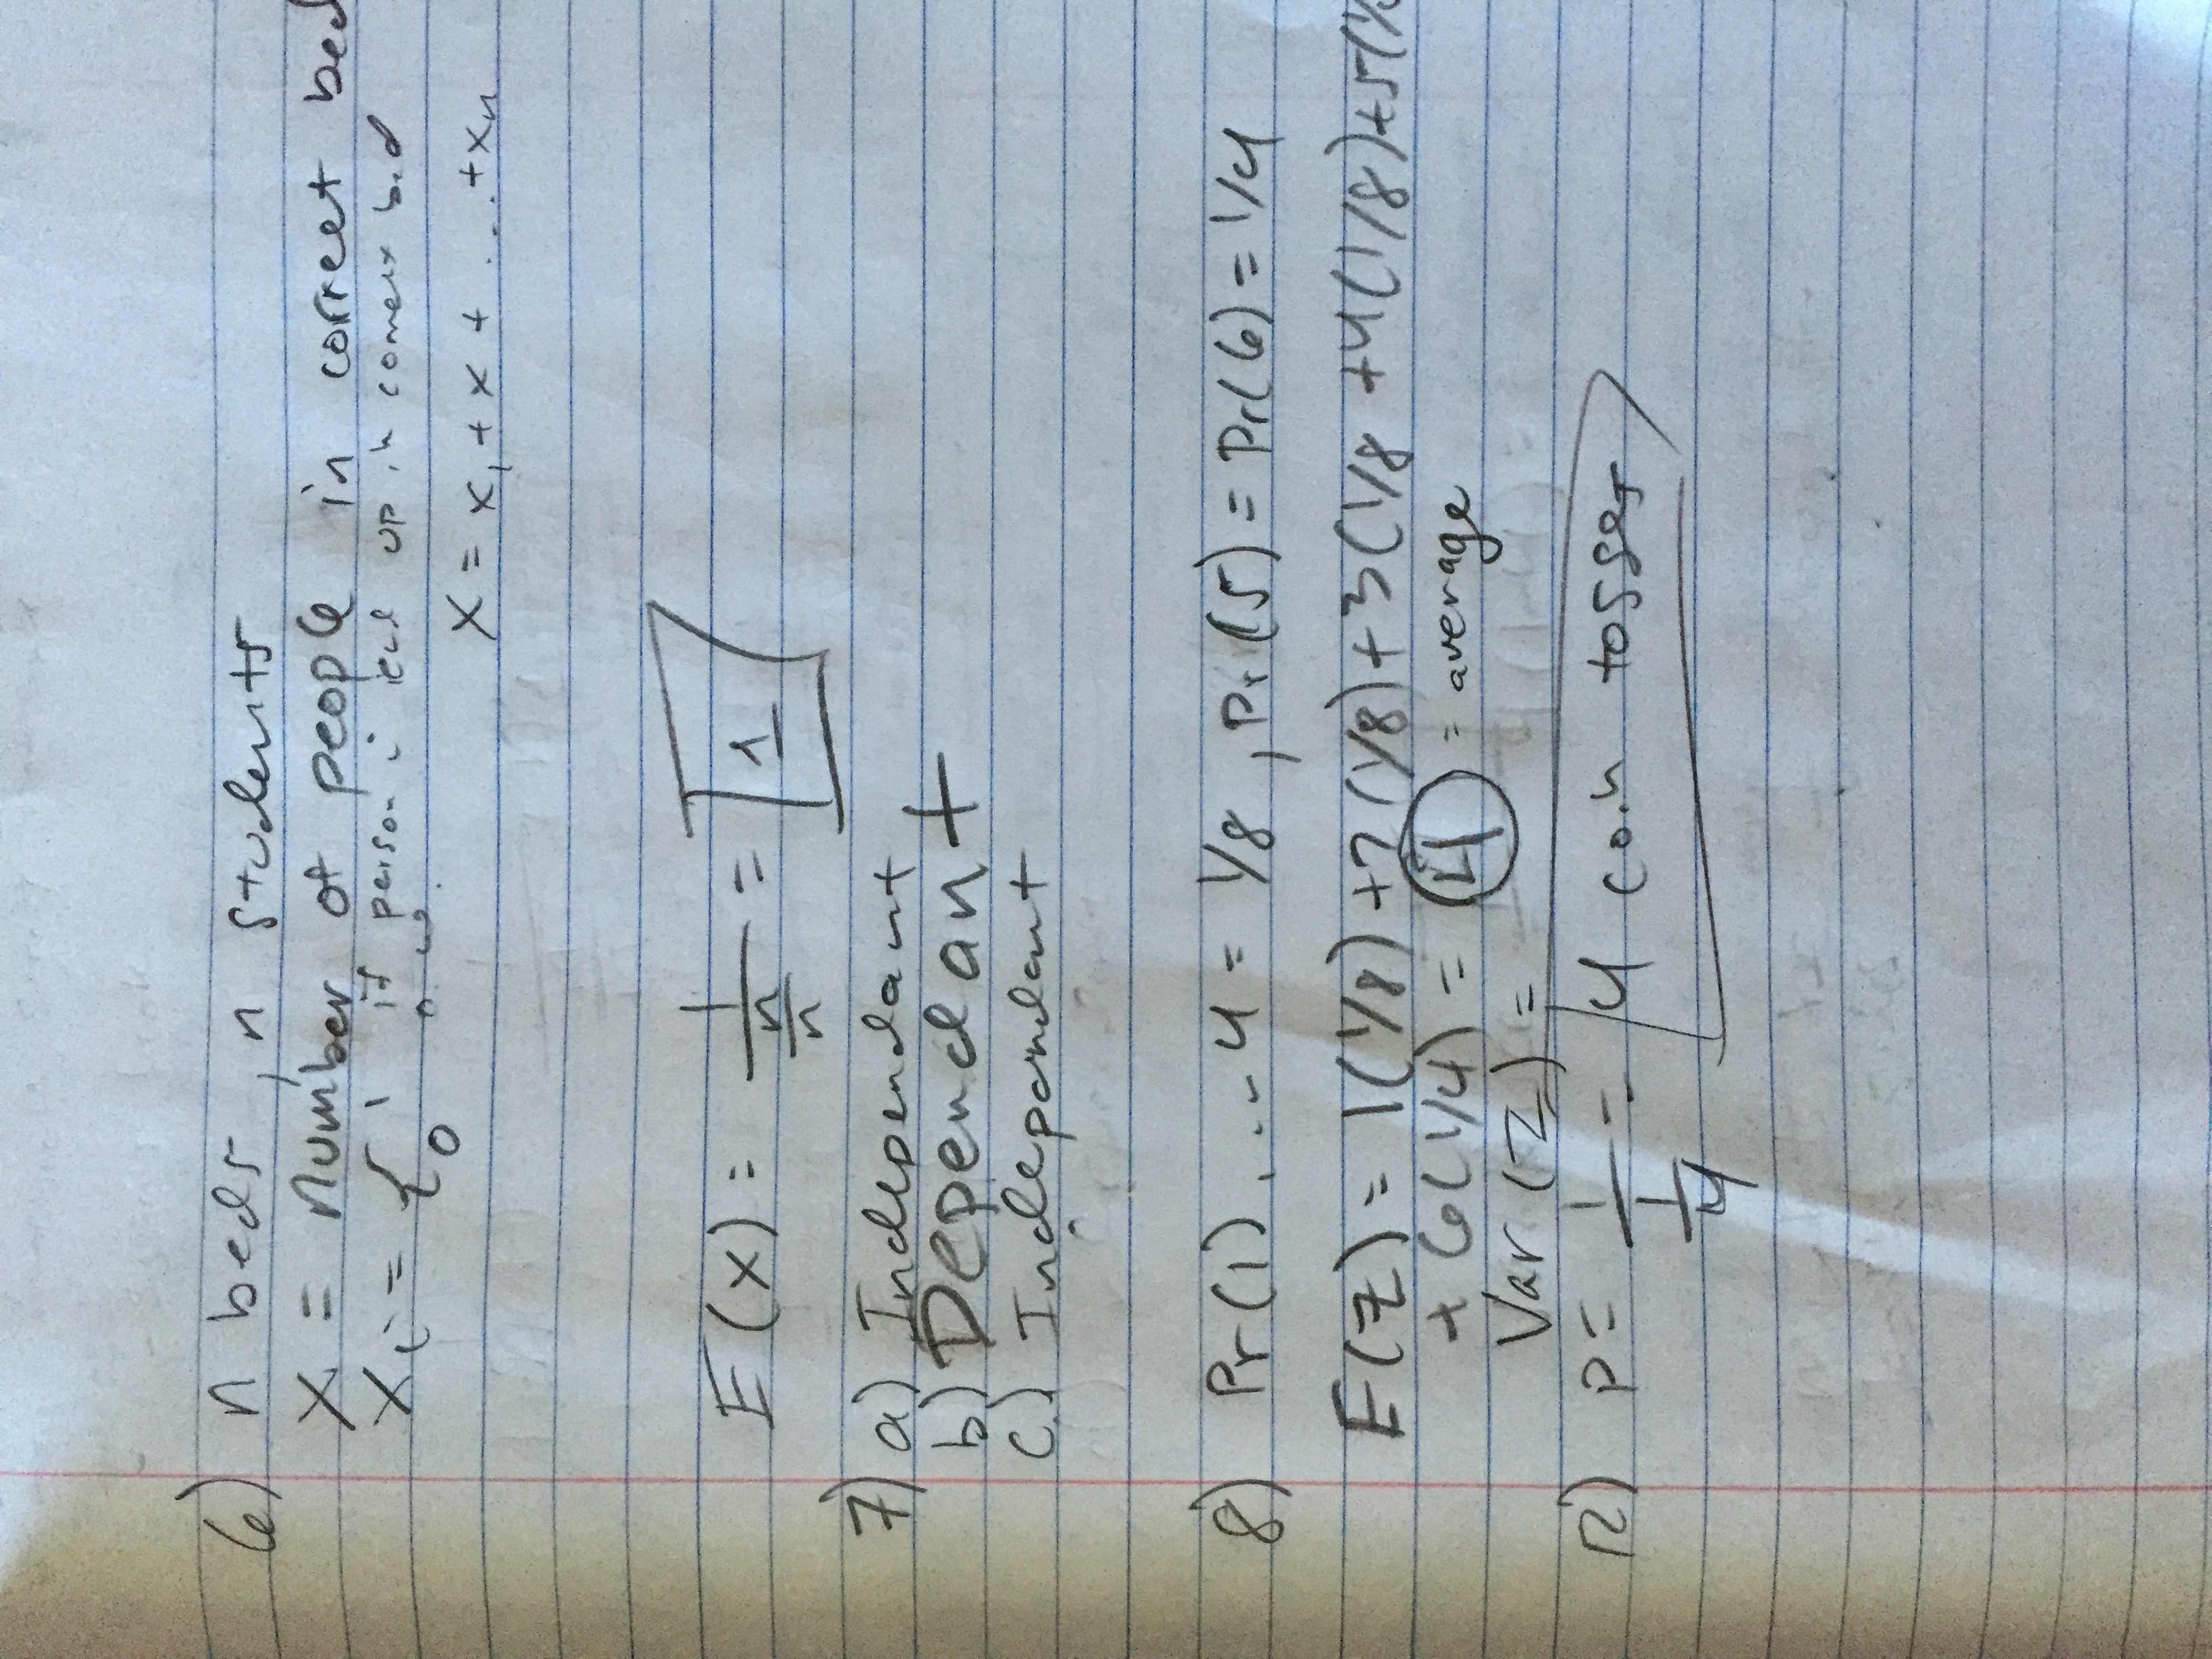 6) n beds, n students
X = number of people in correct bed
Xi = { 1 if person i end up in correct bed
0 o.w.
X = x1 + x + ... + xn
E(x) = 1/(n/n) = 1
7) a) Independant
b) Dependant
c.) Independant
8) Pr(1), ... 4 = 1/8, Pr(5) = Pr(6) = 1/4
E(Z) = 1(1/8) + 2(1/8) + 3(1/8 + 4(1/8) + 5(1/
+ 6(1/4) = 4 = average
Var (Z) =
12) p = 1/(1/4) = 4 coin tosses